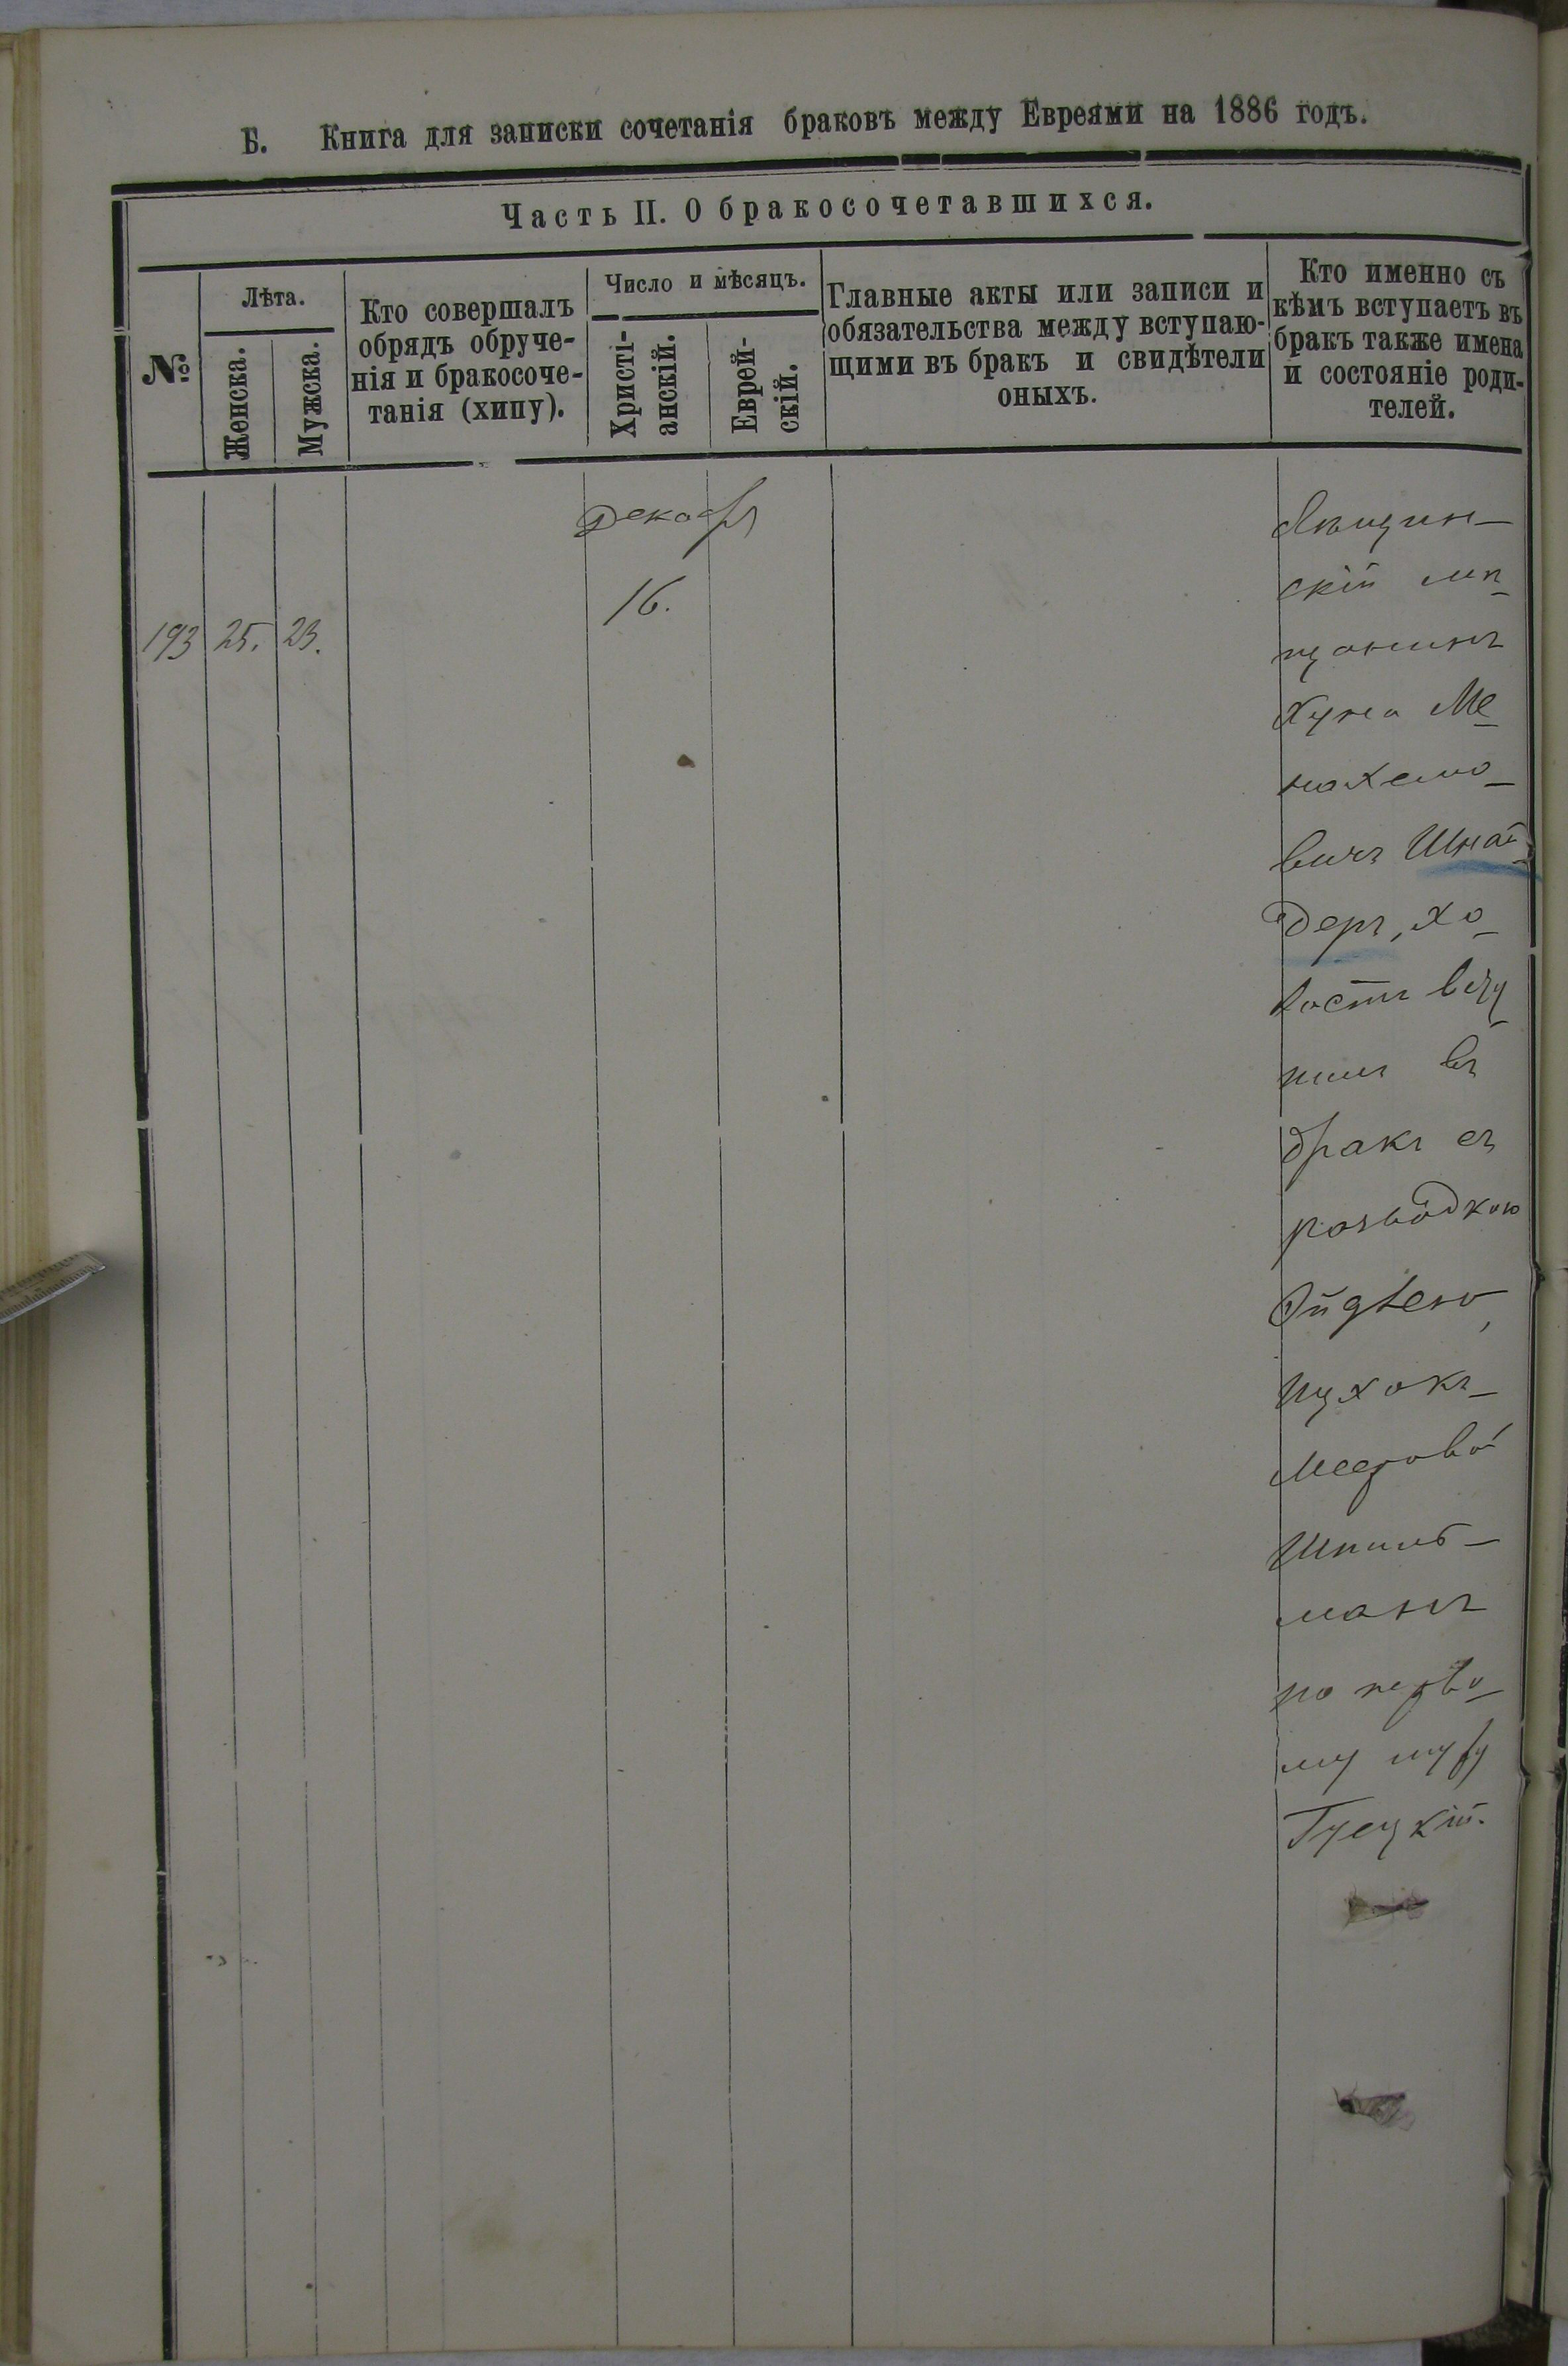 Б. Книга для записки сочетанія браковъ между Евреями на 1886 годъ.
Часть II. О бракосочетавшихся.
№
Лѣта.
Женска.
Мужска.
Кто совершалъ
обрядъ обруче-
нія и бракосоче-
танія (хипу).
Число и мѣсяцъ.
Христі-
анскій.
Еврей-
скій.
Главные акты или записи и
обязательства между вступаю-
щими въ бракъ и свидѣтели
оныхъ.
Кто именно съ
кѣмъ вступаетъ въ
бракъ также имена
и состояніе роди-
телей.
193
25.
23.
Декабр
16.
скій мѣ-
щанинъ
Хуна Ме-
нахемо-
вичъ Шнай-
деръ, хо-
лостъ всту-
пилъ въ
бракъ съ
разводкою
Мееровой
Шпиль-
манъ
по перво-
му